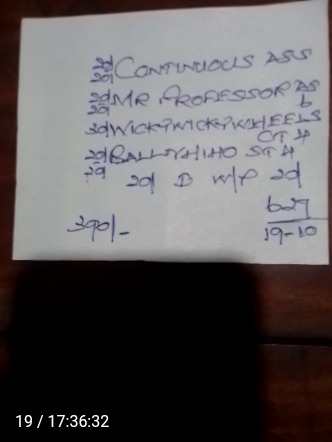 20/20 CONTINUOUS ASS
20/20 MR PROFESSOR AS 6
30/ WICKYWICKYWHEELS CT 4
20/20 BALLYHIHO ST 4
20/ D W/P 20/
629
390/- 19-10
19 / 17:36:32